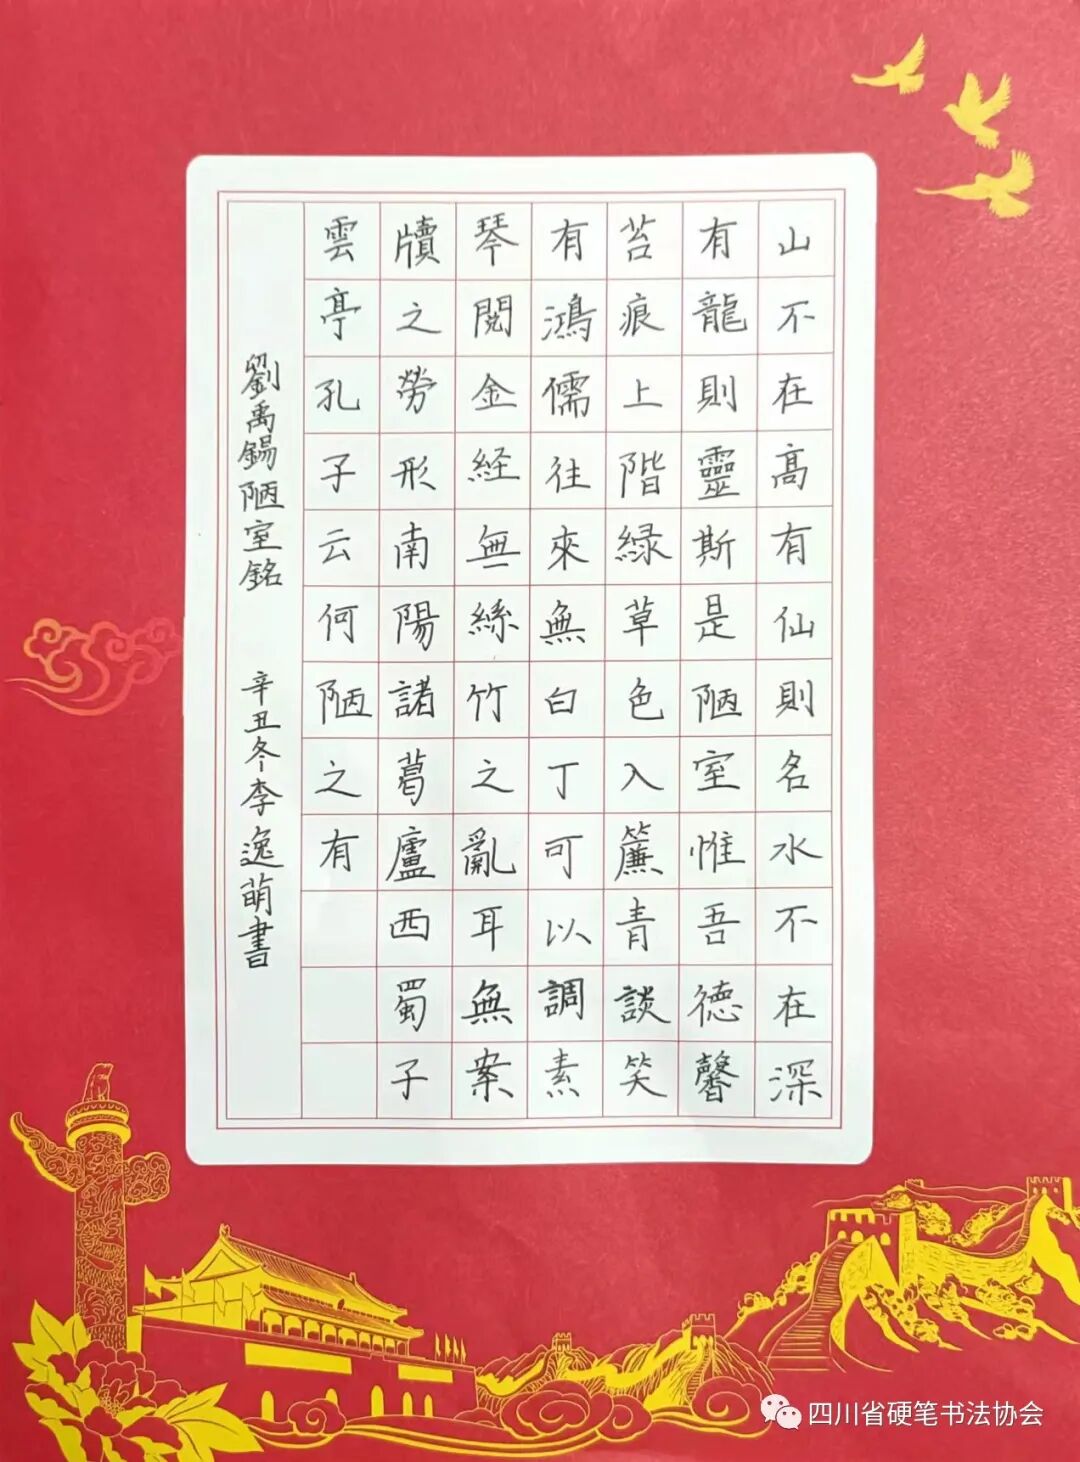 山不在高有仙則名水不在深
有龍則靈斯是陋室惟吾德馨
苔痕上階緑草色入簾青談笑
有鴻儒往來無白丁可以調素
琴閱金経無絲竹之亂耳無案
牘之勞形南陽諸葛廬西蜀子
雲亭孔子云何陋之有
劉禹錫陋室銘 辛丑冬李逸萌書
四川省硬笔书法协会